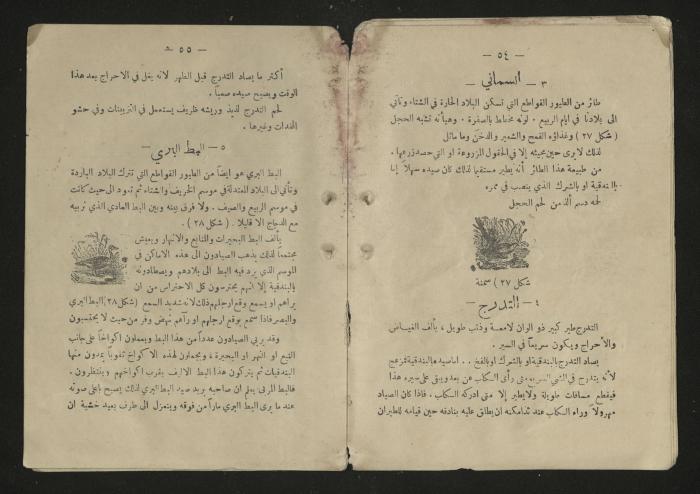 — ٥٤ —
٣ — السماني —
طائر من الطيور القواطع التي تسكن البلاد الحارة في الشتاء وتأتي
الى بلادنا في ايام الربيع . لونه مخطط بالصفرة . وهيأته تشبه الحجل
( شكل ٢٧ ) وغذاؤه القمح والشعير والدخن وما ماثل
لذلك لا يرى حين مجيئه إلا في الحقول المزروعة او التي حصد زرعها .
من طبيعة هذا الطائر أنه يطير مستقيما لذلك كان صيده سهلاً إما
بالبندقية او بالشرك الذي ينصب في ممره
لحمه دسم ألذ من لحم الحجل
شكل ٢٧ ) سمنة
٤ — التدرج —
التدرج طير كبير ذو الوان لامعة وذنب طويل ، يألف الغياض
والأحراج ويكون سريعاً في السير .
يصاد التدرج بالبندقية او بالشرك او بالفخ . . اما صيده بالبندقية فمزعج
لأنه يتدرج في المشي السريع متى رأى الكلب عن بعد ويبقى على سيره هذا
فيقطع مسافات طويلة ولا يطير إلا متى ادركه الكلب . فاذا كان الصياد
مهرولاً وراء الكلب عند ئذ امكنه ان يطلق عليه بنادقه حين قيامه للطيران
— ٥٥ —
أكثر ما يصاد التدرج قبل الظهر لأنه يغل في الاحراج بعد هذا
الوقت ويصبح صيده صعباً .
لحم التدرج لذيذ وريشه ظريف يستعمل في التزيينات وفي حشو
المخدات وغيرها .
٥ — البط البري —
البط البري هو ايضاً من الطيور القواطع التي تترك البلاد الباردة
وتأتي الى البلاد المعتدلة في موسم الخريف والشتاء ثم تعود الى حيث كانت
في موسم الربيع والصيف . ولا فرق بينه وبين البط العادي الذي نربيه
مع الدجاج الا قليلا . ( شكل ٢٨ ) .
يألف البط البحيرات والمنابع والانهار ويعيش
مجتمعاً لذلك يذهب الصيادون الى هذه الاماكن في
الموسم الذي يرد فيه البط الى بلادهم ويصطادونه
بالبندقية إلا أنهم يحترسون كل الاحتراس من ان
يراهم او يسمع وقع ارجلهم ذلك لأنه شديد السمع ( شكل ٢٨ ) البط البري
والبصر فاذا سمع بوقع ارجلهم او رآهم نهض وفر من حيث لا يحتسبون
وقد يربي الصيادون عدداً من هذا البط ويعملون اكواخاً على جانب
النبع او النهر او البحيرة ، ويجعلون لهذه الاكواخ ثقوباً يمدون منها
البندقيات ثم يتركون هذا البط الاليف بقرب اكواخهم وينتظرون .
فالبط المربى يعلم ان صاحبه يريد صيد البط البري لذلك يصيح باعلى صوته
عند ما يرى البط البري ماراً من فوقه وينعزل الى طرف بعيد خشية ان